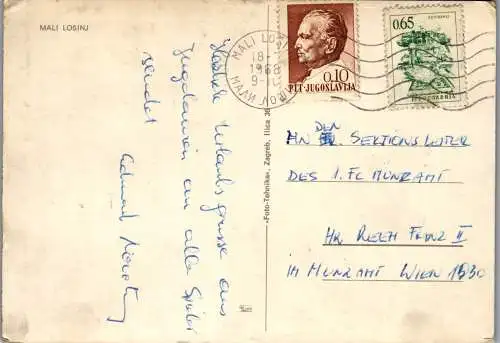 MALI LOSINJ
Herzliche Urlaubsgrüsse aus
Jugoslawien an alle Spieler
sendet
Edmund
"Foto-Tehnika", Zagreb, Ilica 38
MALI LOŠINJ
18
1968
9
МАЛИ ЛОШИЊ
0.10
PTT-JUGOSLAVIJA
0.65
PTT JUGOSLAVIJA
DEN
AN SEKTIONSLEITER
DES 1. FC MÜNZAMT
HR. FRANZ II
IM MÜNZAMT WIEN 1030